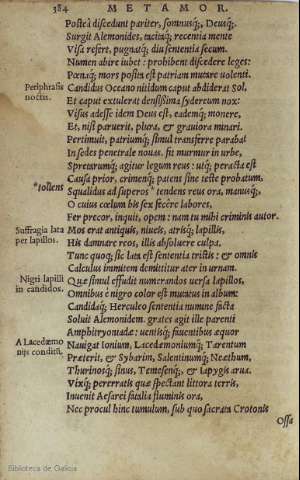 384 METAMOR.
Posteà discedunt pariter, somnusq́;, Deusq́;.
Surgit Alemonides, tacitaq́; recentia mente
Visa refert, pugnatq́; diu sententia secum.
Numen abire iubet: prohibent discedere leges:
Pœnaq́; mors posita est patriam mutare volenti.
Periphrasis noctis.
Candidus Oceano nitidum caput abdiderat Sol,
Et caput extulerat densissima sydereum nox:
Visus adesse idem Deus est, eademq́; monere,
Et, nisi paruerit, plura, & grauiora minari.
Pertimuit, patriumq́; simul transferre parabat
In sedes penetrale nouas. fit murmur in vrbe,
Spretarumq́; agitur legum reus: vtq́; peracta est
Causa prior, crimenq́; patens sine teste probatum,
*tollens
Squalidus ad superos * tendens reus ora, manusq́;,
O cuius cœlum bis sex fecêre labores.
Fer precor, inquit, opem: nam tu mihi criminis autor.
Suffragia lata per lapillos.
Mos erat antiquis, niueis, atrisq́; lapillis,
His damnare reos, illis absoluere culpa.
Tunc quoq́; sic lata est sententia tristis: & omnis
Calculus immitem demittitur ater in vrnam.
Nigri lapilli in candidos.
Quæ simul effudit numerandos versa lapillos,
Omnibus è nigro color est mutatus in album:
Candidaq́; Herculeo sententia numine facta
Soluit Alemonidem. grates agit ille parenti
Amphitryoniadæ: ventisq́; fauentibus æquor
A Lacedæmonijs conditũ.
Nauigat Ionium, Lacedæmoniumq́; Tarentum
Præterit, & Sybarim, Salentinumq́; Neæthum,
Thurinosq́; sinus, Temesenq́;, & Iapygis arua.
Vixq́; pererratis quæ spectant littora terris,
Inuenit Aesarei fatalia fluminis ora,
Nec procul hinc tumulum, sub quo sacrata Crotonis
Ossa
Biblioteca de Galicia